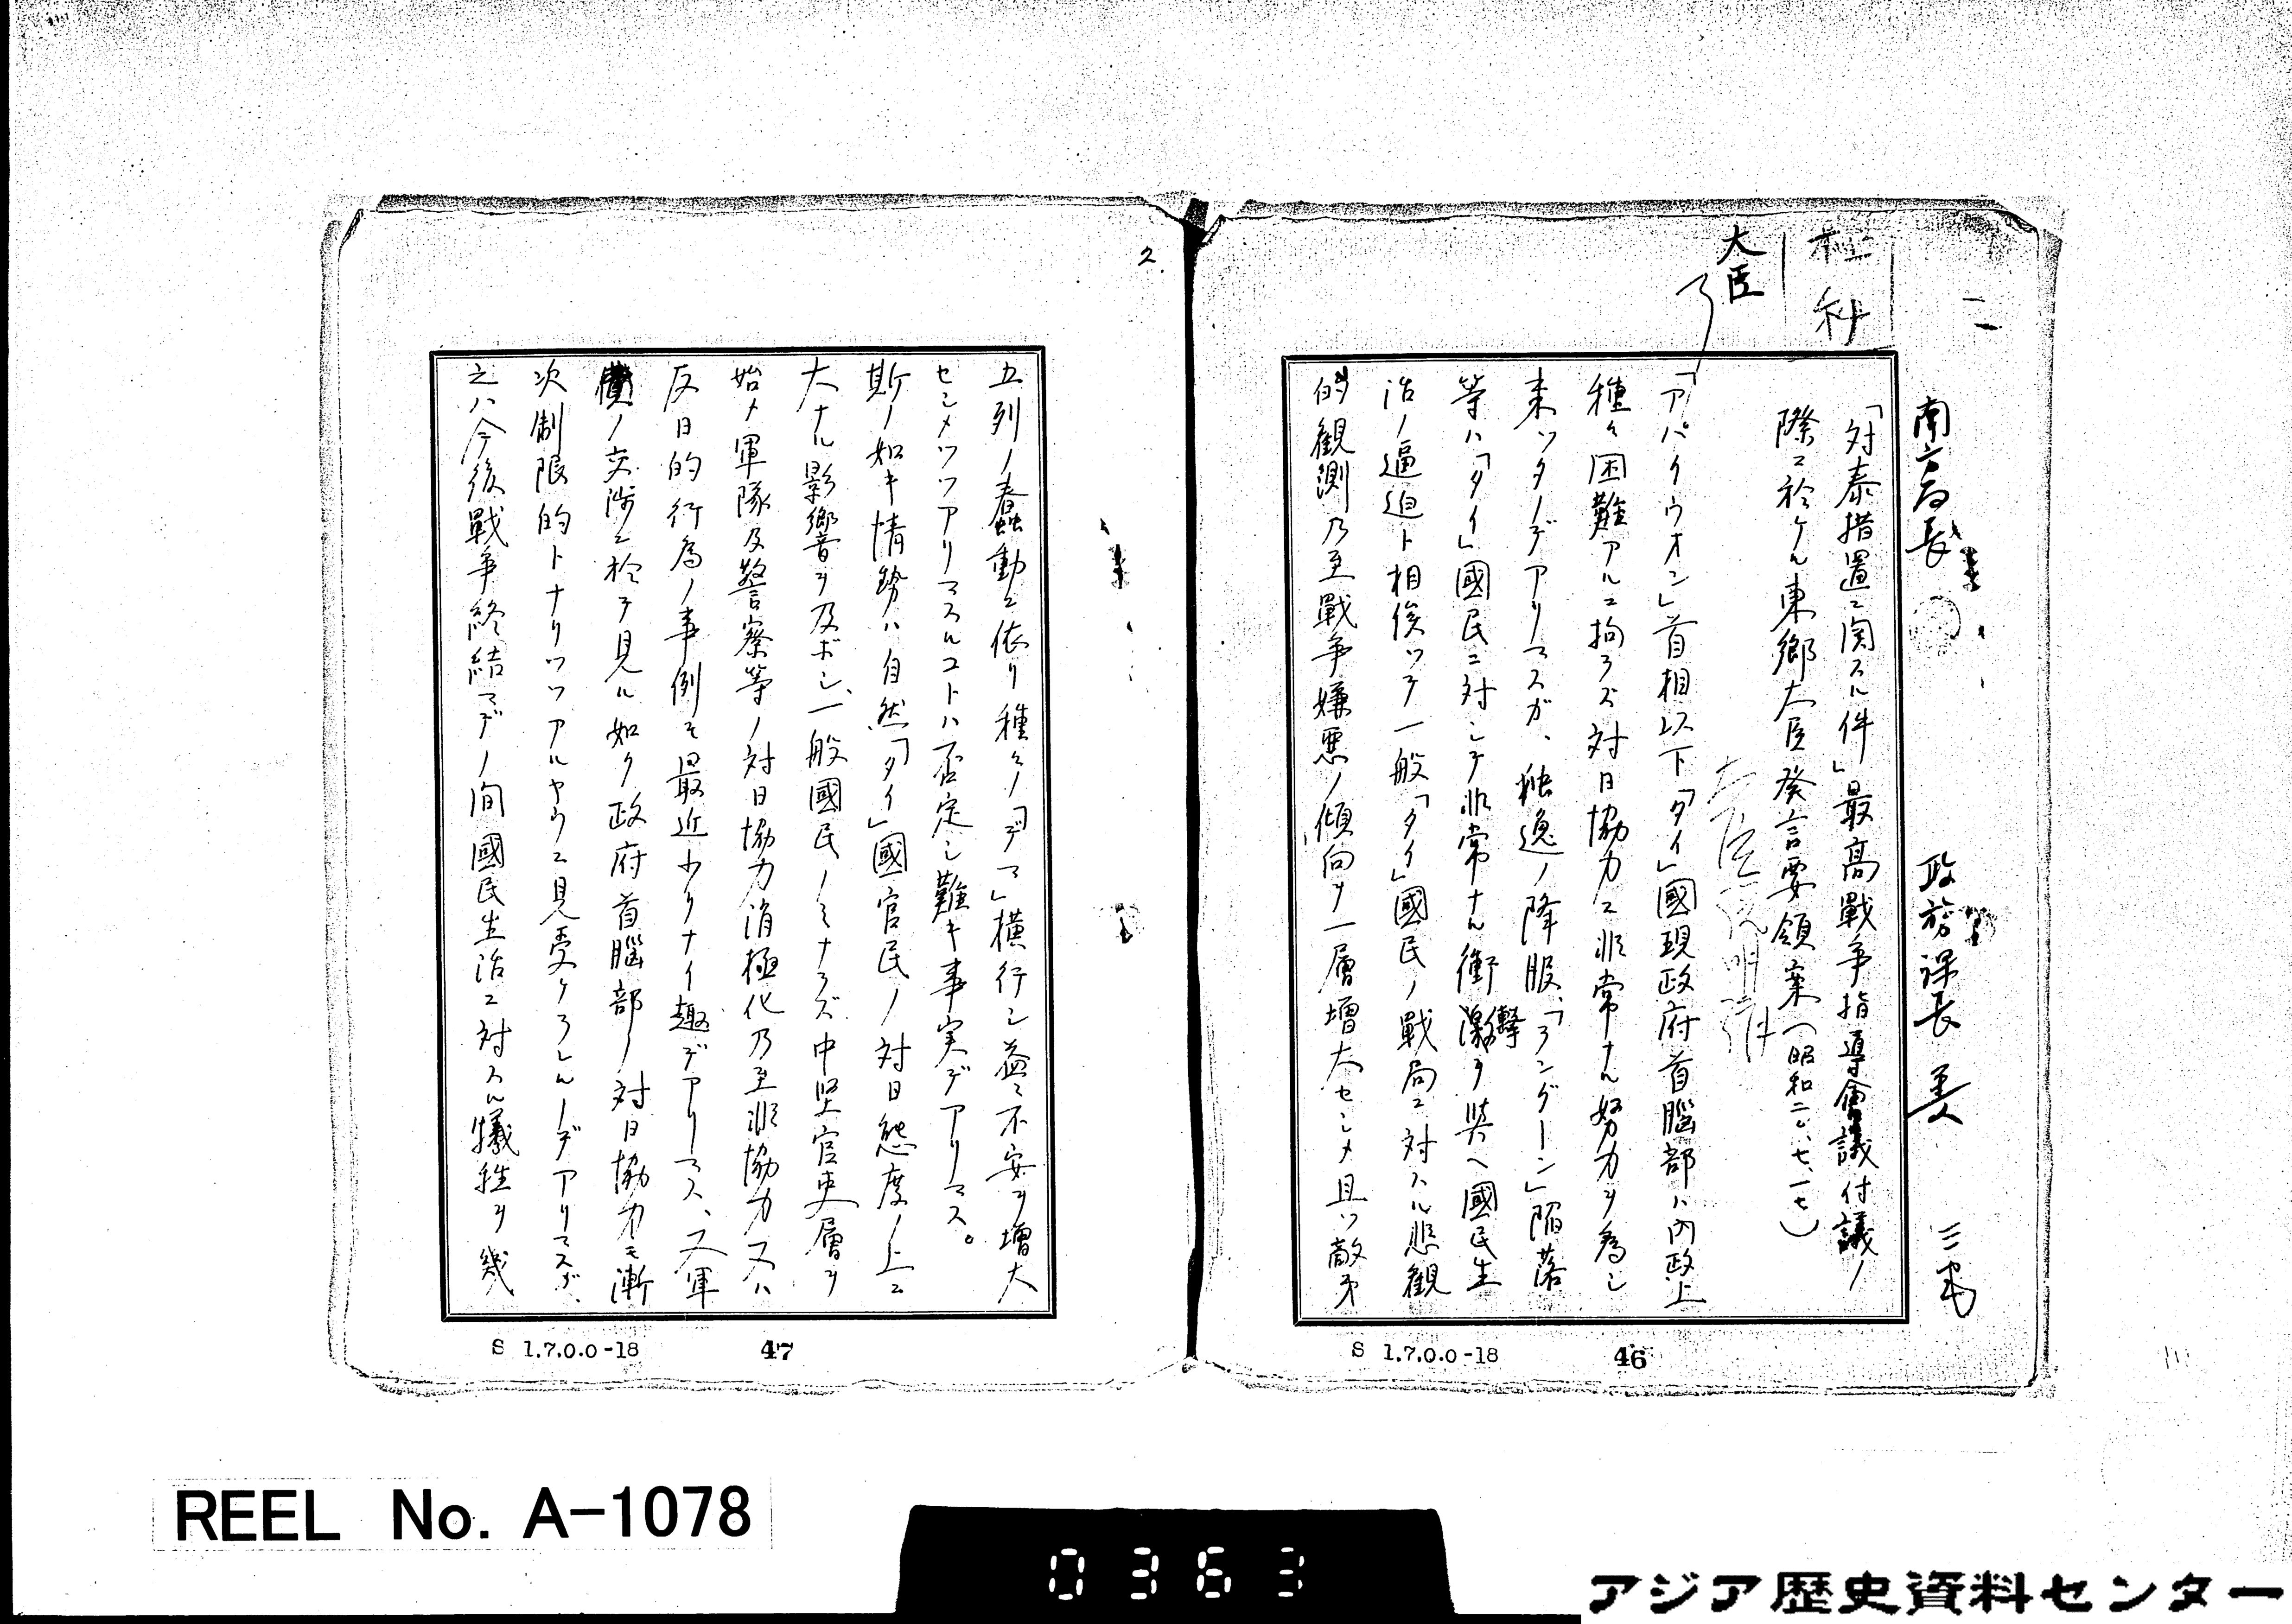 二
極
秘
大臣
了
南方局長
政務課長
「対泰措置ニ関スル件」最高戦争指導會議付議ノ
際ニ於ケル東郷大臣発言要領案(昭和二〇、七、一七)
大臣説明済
「アパイウオン」首相以下「タイ」國現政府首腦部ハ内政上
種々困難アルニ拘ラズ対日協力ニ非常ナル努力ヲ為シ
来ツタノデアリマスガ、独逸ノ降服、「ラングーン」陥落
等ハ「タイ」國民ニ対シテ非常ナル衝撃ヲ與ヘ國民生
活ノ逼迫ト相俟ツテ一般「タイ」國民ノ戦局ニ対スル悲観
的観測乃至戰争嫌悪ノ傾向ヲ一層増大セシメ且ツ敵第
S 1.7.0.0-18
46
2.
五列ノ蠢動ニ依リ種々ノ「デマ」横行シ益々不安ヲ増大
セシメツツアリマスルコトハ否定シ難キ事実デアリマス。
斯ノ如キ情勢ハ自然「タイ」國官民ノ対日態度ノ上ニ
大ナル影響ヲ及ボシ、一般國民ノミナラズ中堅官吏層ヲ
始メ軍隊及警察等ノ対日協力消極化乃至非協力又ハ
反日的行為ノ事例モ最近少クナイ趣デアリマス、又軍
費ノ交渉ニ於テ見ル如ク政府首腦部ノ対日協力モ漸
次制限的トナリツツアルヤウニ見受ケラレルノデアリマスガ、
之ハ今後戰争終結マデノ間國民生活ニ対スル犠牲ヲ幾
S 1.7.0.0-18
47
REEL No. A-1078
0363
アジア歴史資料センター